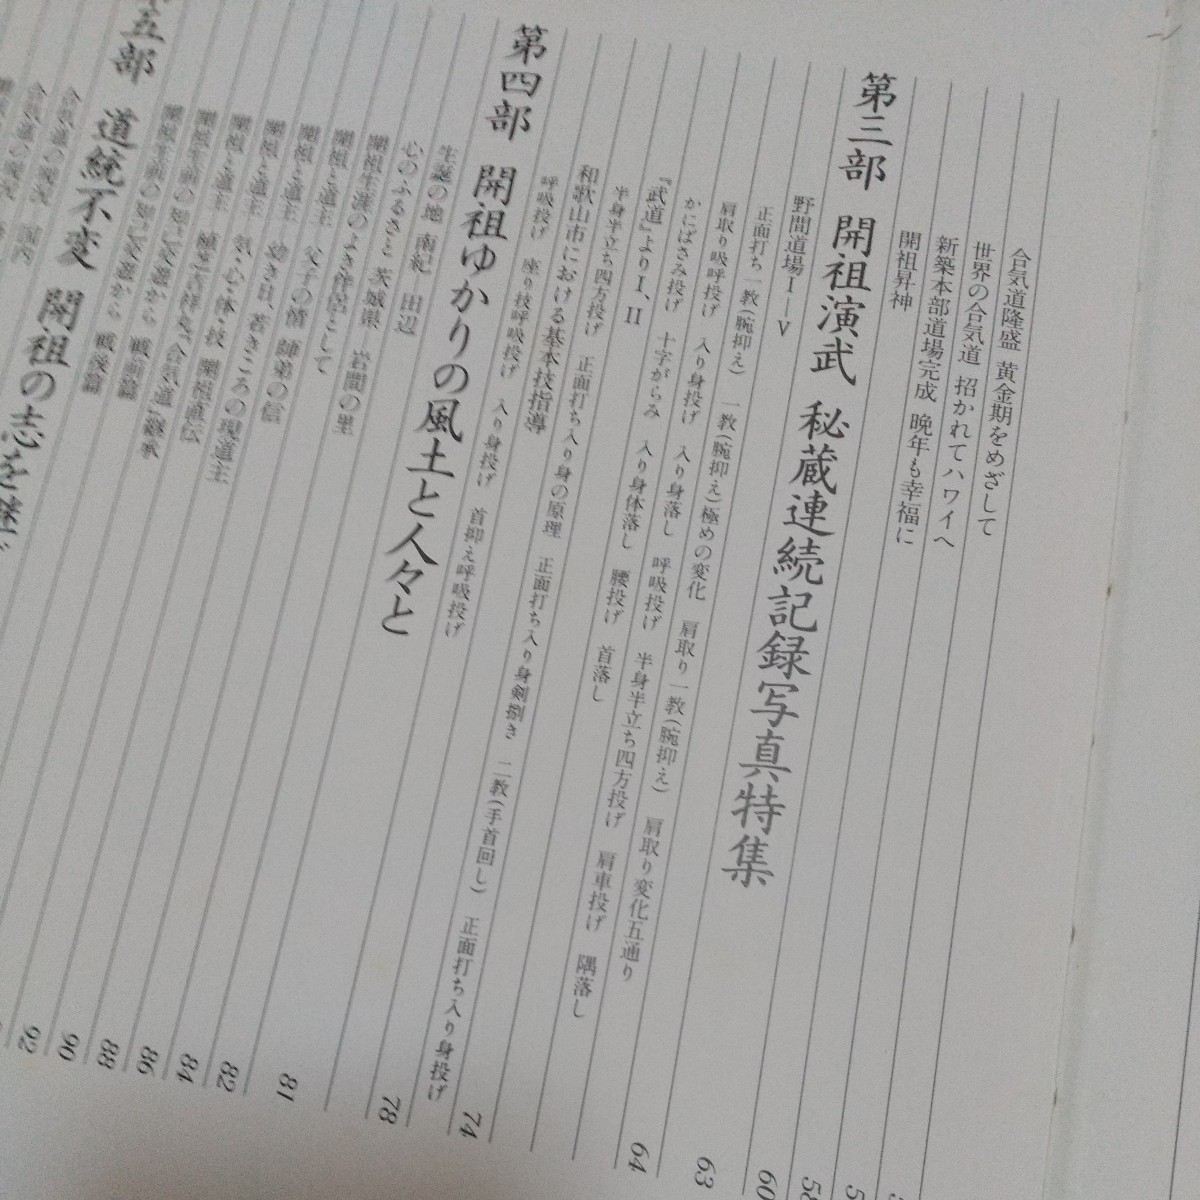 合気道隆盛 黄金期をめざして
世界の合気道 招かれてハワイへ
新築本部道場完成 晩年も幸福に
開祖昇神
第三部 開祖演武 秘蔵連続記録写真特集
野間道場Ⅰ―Ⅴ
正面打ち一教(腕抑え) 一教(腕抑え)極めの変化 肩取り一教(腕抑え) 肩取り変化五通り
肩取り呼吸投げ 入り身投げ 入り身落し 呼吸投げ 半身半立ち四方投げ 肩車投げ 隅落し
かにばさみ投げ 十字がらみ 入り身体落し 腰投げ 首落し
『武道』よりⅠ、Ⅱ
半身半立ち四方投げ 正面打ち入り身の原理 正面打ち入り身剣捌き 二教(手首回し) 正面打ち入り身投げ
和歌山市における基本技指導
呼吸投げ 座り技呼吸投げ 入り身投げ 首抑え呼吸投げ
第四部 開祖ゆかりの風土と人々と
生誕の地 南紀 田辺
心のふるさと 茨城県 岩間の里
開祖生涯のよき伴侶として
開祖と道主 父子の情 師弟の信
開祖と道主 幼き日、若きころの現道主
開祖と道主 気・心・体・技 開祖直伝
開祖と道主 植芝吉祥丸“合気道”継承
開祖生前の知己交遊から 戦前篇
開祖生前の知己交遊から 戦後篇
五部 道統不変 開祖の志を継
合気道の現況 国内
合気道の現況
60
63
64
74
78
81
82
84
86
88
90
92